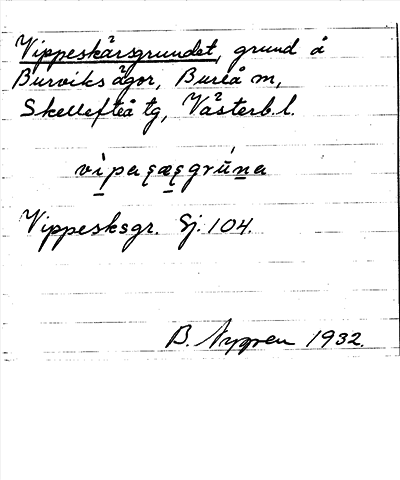 Vippeskärsgrundet, grund å
Burviks ägor, Bureå sn,
Skellefteå tg, Västerb. l.
Vippesksgr. Sj. 104.
B. Nygren 1932.